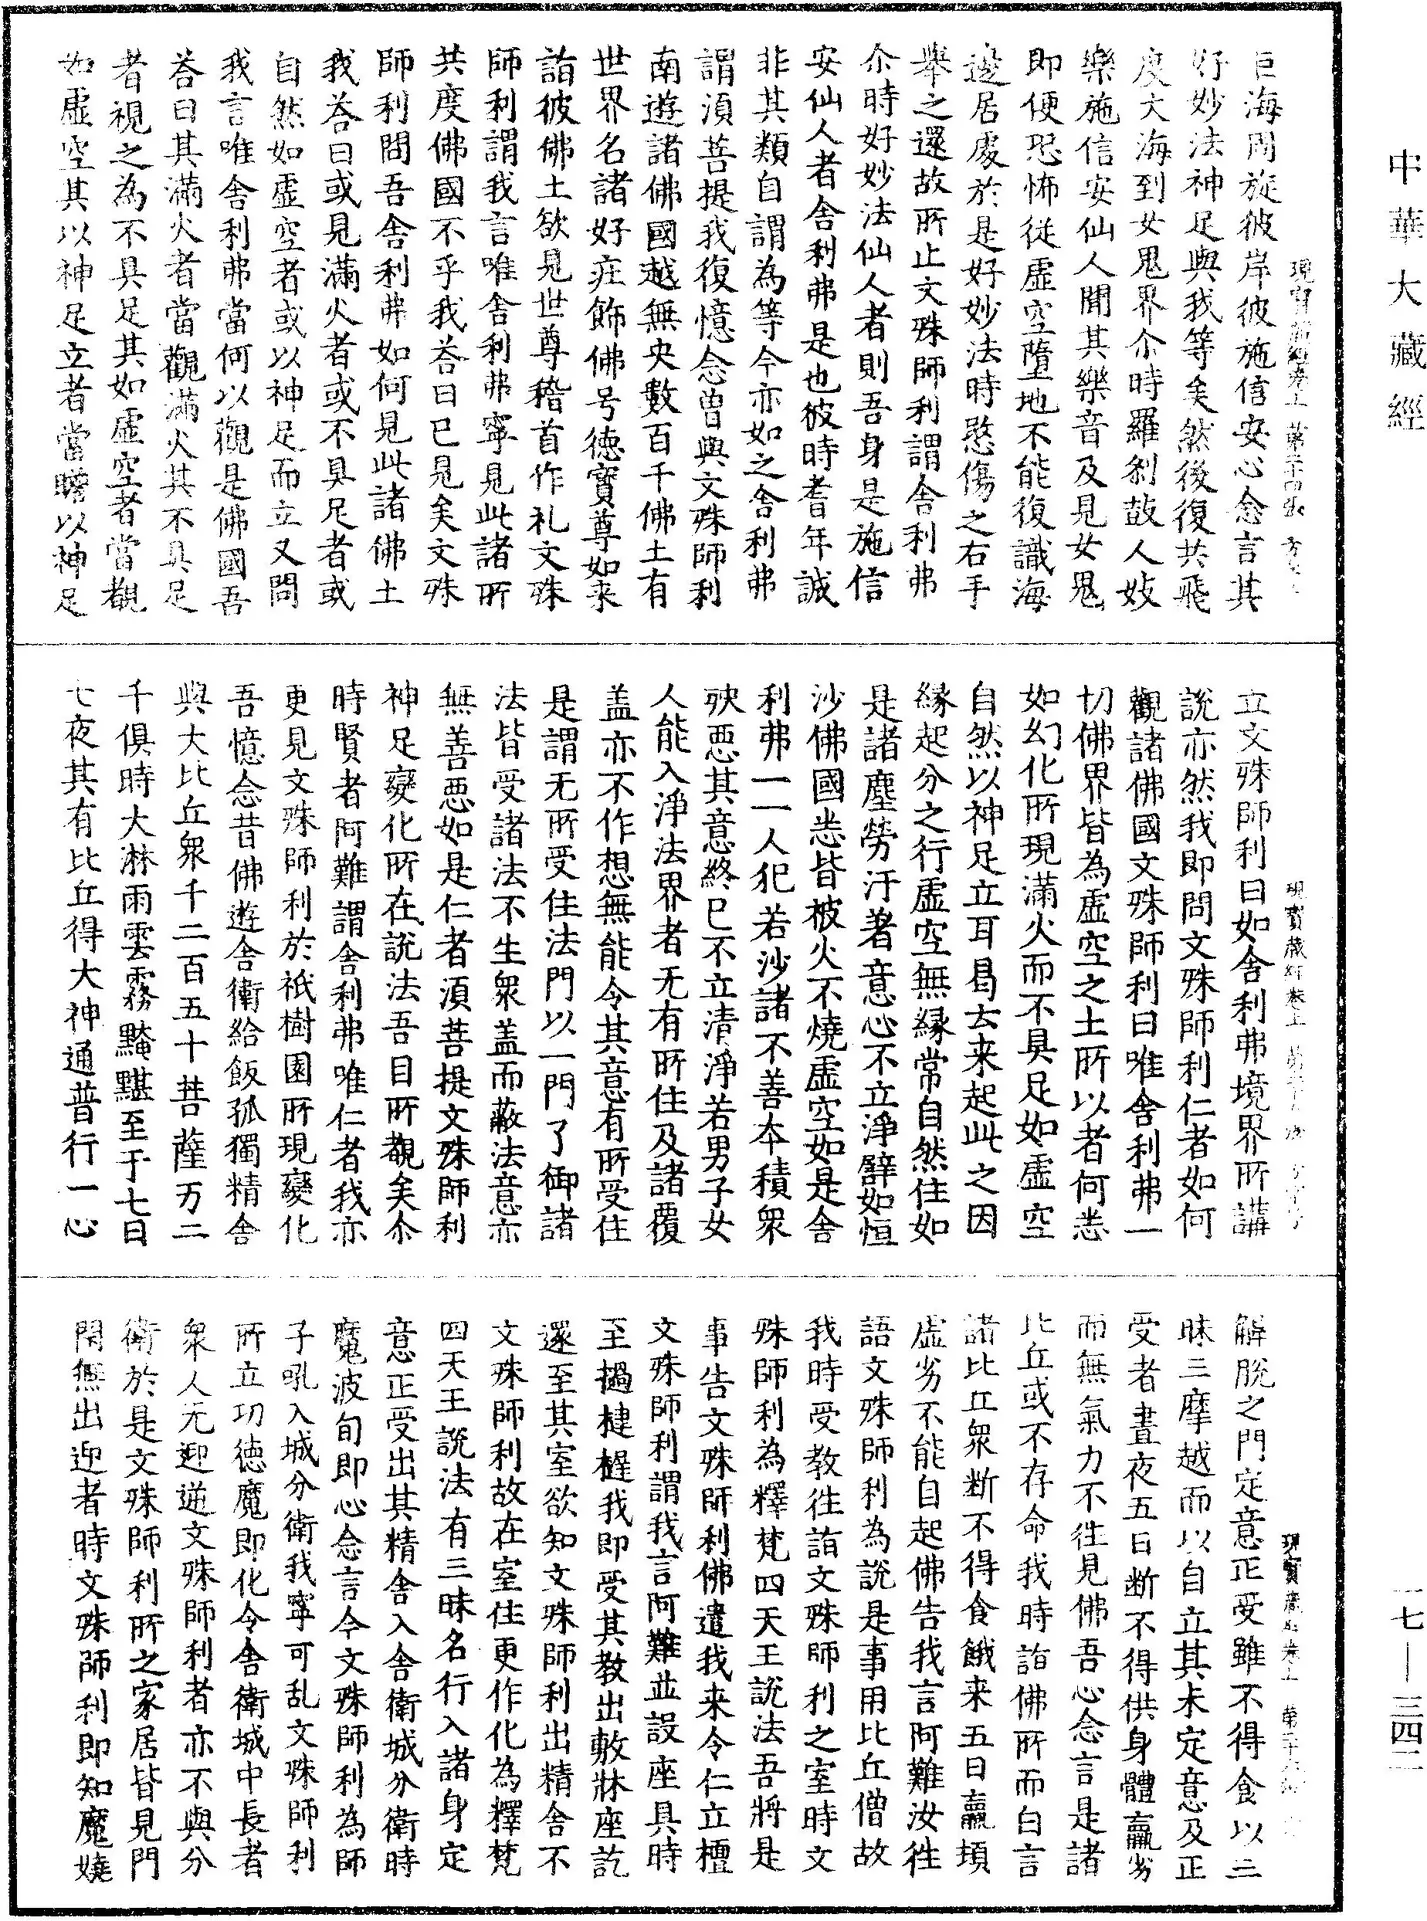 中華大藏經
一七—三四二
巨海周旋彼岸彼施信安心念言其
好妙法神足與我等矣然後復共飛
度大海到女鬼界尒時羅剎鼓人妓
樂施信安仙人聞其樂音及見女鬼
即便恐怖從虛空墮地不能復識海
邊居處於是好妙法時愍傷之右手
舉之還故所止文殊師利謂舍利弗
尒時好妙法仙人者則吾身是施信
安仙人者舍利弗是也彼時耆年誠
非其類自謂為等今亦如之舍利弗
謂湏菩提我復憶念曾與文殊師利
南遊諸佛國越無央數百千佛土有
世界名諸好莊飾佛号德寶尊如来
詣彼佛土欲見世尊稽首作礼文殊
師利謂我言唯舍利弗寧見此諸所
共度佛國不乎我荅曰已見矣文殊
師利問吾舍利弗如何見此諸佛土
我荅曰或見滿火者或不具足者或
自然如虛空者或以神足而立又問
我言唯舍利弗當何以觀是佛國吾
荅曰其滿火者當觀滿火其不具足
者視之為不具足其如虛空者當觀
如虛空其以神足立者當瞻以神足
立文殊師利曰如舍利弗境界所講
說亦然我即問文殊師利仁者如何
觀諸佛國文殊師利曰唯舍利弗一
切佛界皆為虛空之土所以者何悉
如幻化所現滿火而不具足如虛空
自然以神足立耳曷去来起此之因
緣起分之行虛空無緣常自然住如
是諸塵勞汙著意心不立淨譬如恒
沙佛國悉皆被火不燒虛空如是舍
利弗一一人犯若沙諸不善本積衆
殃惡其意終已不立清淨若男子女
人能入淨法界者无有所住及諸覆
盖亦不作想無能令其意有所受住
是謂无所受住法門以一門了御諸
法皆受諸法不生衆盖而蔽法意亦
無善惡如是仁者湏菩提文殊師利
神足變化所在說法吾目所覩矣尒
時賢者阿難謂舍利弗唯仁者我亦
更見文殊師利於祇樹園所現變化
吾憶念昔佛遊舍衛給飯孤獨精舍
與大比丘衆千二百五十菩薩万二
千俱時大淋雨雲霧黤黮至于七日
七夜其有比丘得大神通普行一心
解脫之門定意正受雖不得食以三
昧三摩越而以自立其未定意及正
受者晝夜五日斷不得供身體羸劣
而無氣力不往見佛吾心念言是諸
比丘或不存命我時詣佛所而白言
諸比丘衆斷不得食餓来五日羸頓
虛劣不能自起佛告我言阿難汝往
語文殊師利為說是事用比丘僧故
我時受教往詣文殊師利之室時文
殊師利為釋梵四天王說法吾將是
事告文殊師利佛遣我来令仁立檀
文殊師利謂我言阿難並設座具時
至撾揵槌我即受其教出敷牀座訖
還至其室欲知文殊師利出精舍不
文殊師利故在室住更作化為釋梵
四天王說法有三昧名行入諸身定
意正受出其精舍入舍衛城分衛時
魔波旬即心念言今文殊師利為師
子吼入城分衛我寧可乱文殊師利
所立功德魔即化令舍衛城中長者
衆人无迎逆文殊師利者亦不與分
衛於是文殊師利所之家居皆見門
閉無出迎者時文殊師利即知魔嬈